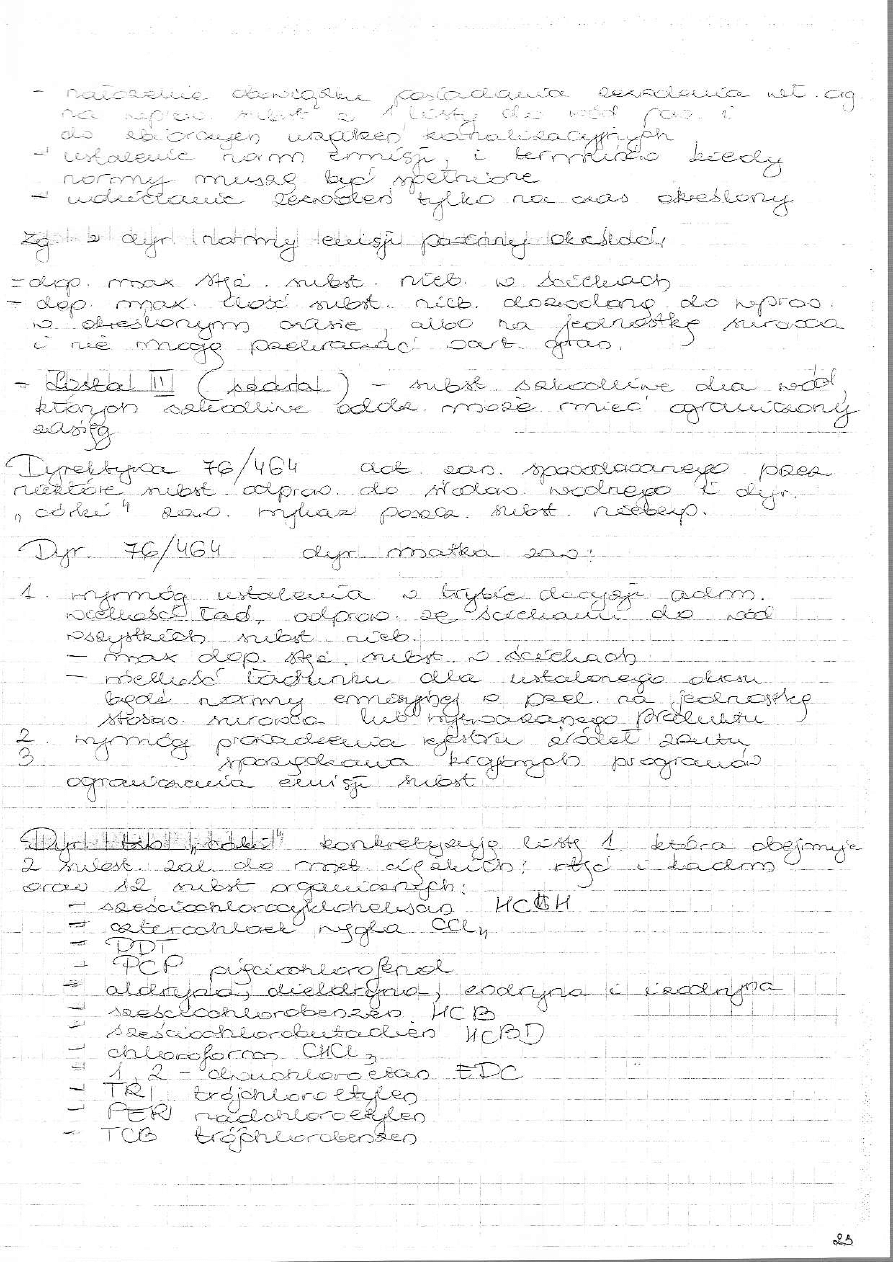 - nałożenie obowiązku posiadania zezwolenia wł. org
na wprow. subst z 1 listy do wód pow i
do zbiorczych urządzeń kanalizacyjnych
- ustalenie norm emisji, i terminów kiedy
normy muszą być spełnione
- udzielanie zezwoleń tylko na czas określony
Zg z dyr normy emisji powinny określać,
- dop. max stęż. subst. nieb. w ściekach
- dop. max. ilość subst. nieb. dozwoloną do wprow.
w określonym czasie, albo na jednostkę surowca
i nie mogą przekraczać wart. gran.
- Lista II (szara) - subst szkodliwe dla wód,
których szkodliwe oddz. może mieć ograniczony
zasięg
Dyrektywa 76/464 dot. zan. spowodowanego przez
niektóre subst. odprow. do środow. wodnego i dyr.
"córki" zaw. wykaz poszcz. subst. niebezp.
Dyr. 76/464 - dyr matka zaw:
1. wymóg ustalenia w trybie decyzji adm.
wielkości ład. odprow. ze ściekami do wód
wszystkich subst nieb.
- max dop. stęż. subst. w ściekach
- wielkość ładunku dla ustalonego okresu
będź normy emisyjnej w przel. na jednostkę
stosow. surowca lub wytwarzanego produktu
2. wymóg prowadzenia rejestru źródeł zrzutu
3 sporządzania krajowych programów
ograniczania emisji subst
Dyr. tzw "córki" konkretyzują listę 1 która obejmuje
2 subst zal do met ciężkich: rtęć i kadm
oraz 12 subst organicznych:
- sześciochlorocykloheksan HCH
- czterochlorek węgla CCl4
- DDT
- PCP pięciochlorofenol
- aldryna, dieldryna, endryna i izodryna
- sześciochlorobenzen HCB
- sześciochlorobutadien HCBD
- chloroform CHCl3
- 1,2 - dwuchloroetan EDC
- TRI trójchloroetylen
- PERI nadchloroetylen
- TCB trójchlorobenzen
23